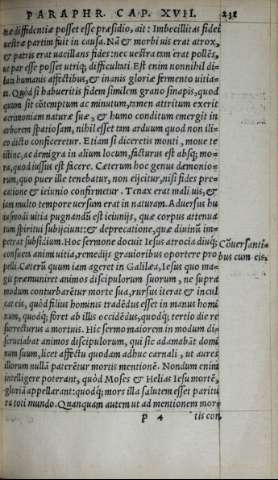 PARAPHR. CAP. XVII. 231
næ diffidentiæ posset esse præsidio, ait: Imbecillitas fidei
uestræ partim fuit in causa. Nā & morbi uis erat atrox,
& patris erat uacillans fides: nec uestra tum erat pollēs,
ut par esse posset utriq; difficultati. Est enim nonnihil di-
luta humanis affectibus, & inanis gloriæ fermento uitia-
ta. Quòd si habueritis fidem similem grano sinapis, quod
quum sit cōtemptum ac minutum, tamen attritum exerit
acrimoniam naturæ suæ, & humo conditum emergit in
arborem spatiosam, nihil esset tam arduum quod non ili-
co dicto conficeretur. Etiam si diceretis monti, moue te
istinc, ac demigra in alium locum, facturus est absq; mo-
ra, quod iussus est facere. Cæterum hoc genus dæmonio-
rum, quo puer ille tenebatur, non eijcitur, nisi fides pre-
catione & ieiunio confirmetur. Tenax erat mali uis, &
iam multo tempore uersum erat in naturam. Aduersus hu
iusmodi uitia pugnandū est ieiunijs, quæ corpus attenuā
tum spiritui subijciunt: & deprecatione, quæ diuinū im-
petrat subsidium. Hoc sermone docuit Iesus atrocia diuq;
consueta animi uitia, remedijs grauioribus oportere pro
pelli. Cæterū quum iam ageret in Galilæa, Iesus quo ma-
gis præmuniret animos discipulorum suorum, ne supra
modum conturbarētur morte sua, rursus iterat & incul
cat eis, quòd filius hominis tradēdus esset in manus homi
num, quodq; foret ab illis occidēdus, quodq; tertio die re
surrecturus à mortuis. Hic sermo maiorem in modum di-
scruciabat animos discipulorum, qui sic adamabāt domi
num suum, licet affectu quodam adhuc carnali, ut aures
illorum nullā paterētur mortis mentionē. Nondum enim
intelligere poterant, quòd Moses & Helias Iesu mortē,
gloriā appellarant: quodq; mors illa salutem esset paritu
ra toti mundo. Quanquam autem ut ad mentionem mor
P 4 tis con
Cōuersanti-
bus cum eis.